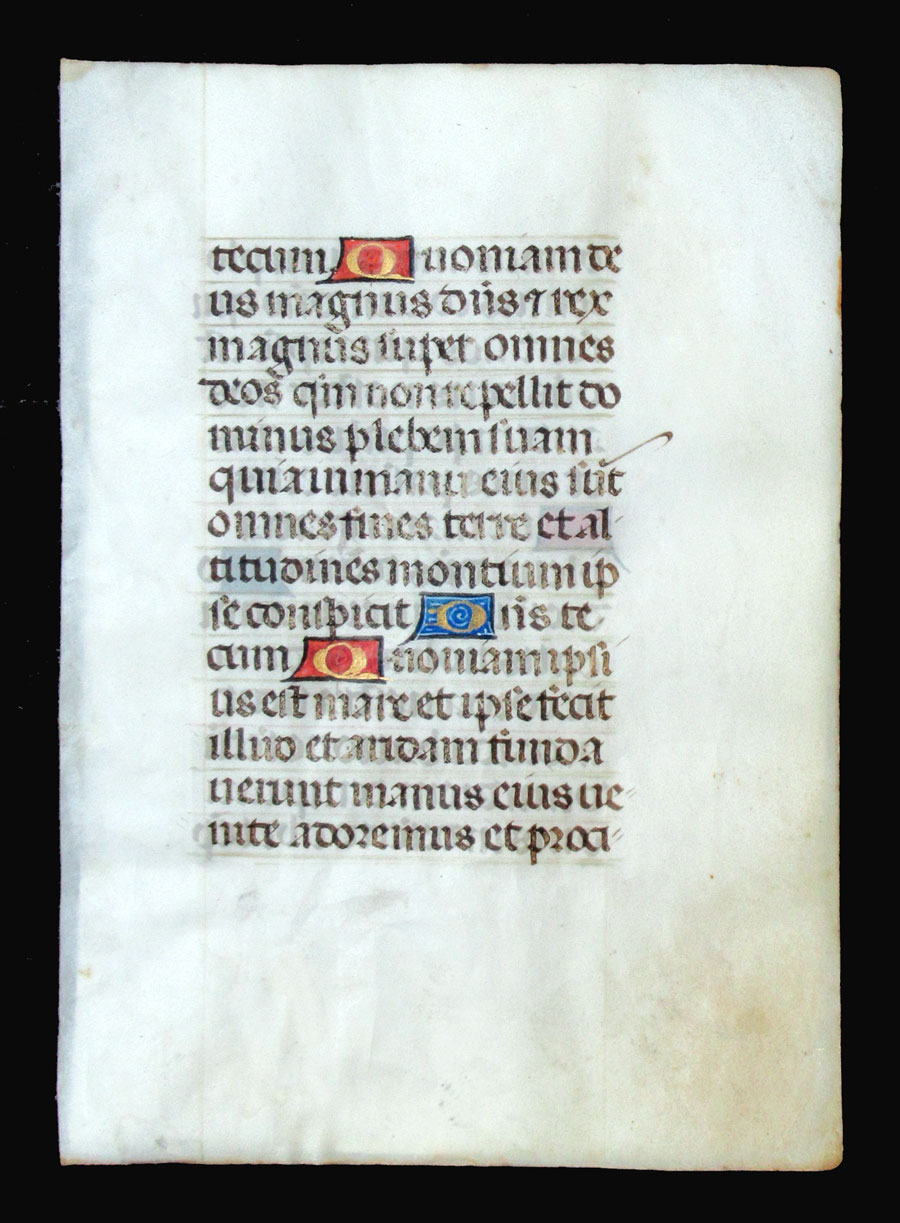 tecum Quoniam de
us magnus dn̄s ⁊ rex
magnus super omnes
deos qm̄ non repellit do
minus plebem suam
quia in manu eius sūt
omnes fines terre et al
titudines montium ip
se conspicit Dn̄s te
cum Quoniam ipsi
us est mare et ipse fecit
illud et aridam funda
uerunt manus eius ue
nite adoremus et proci